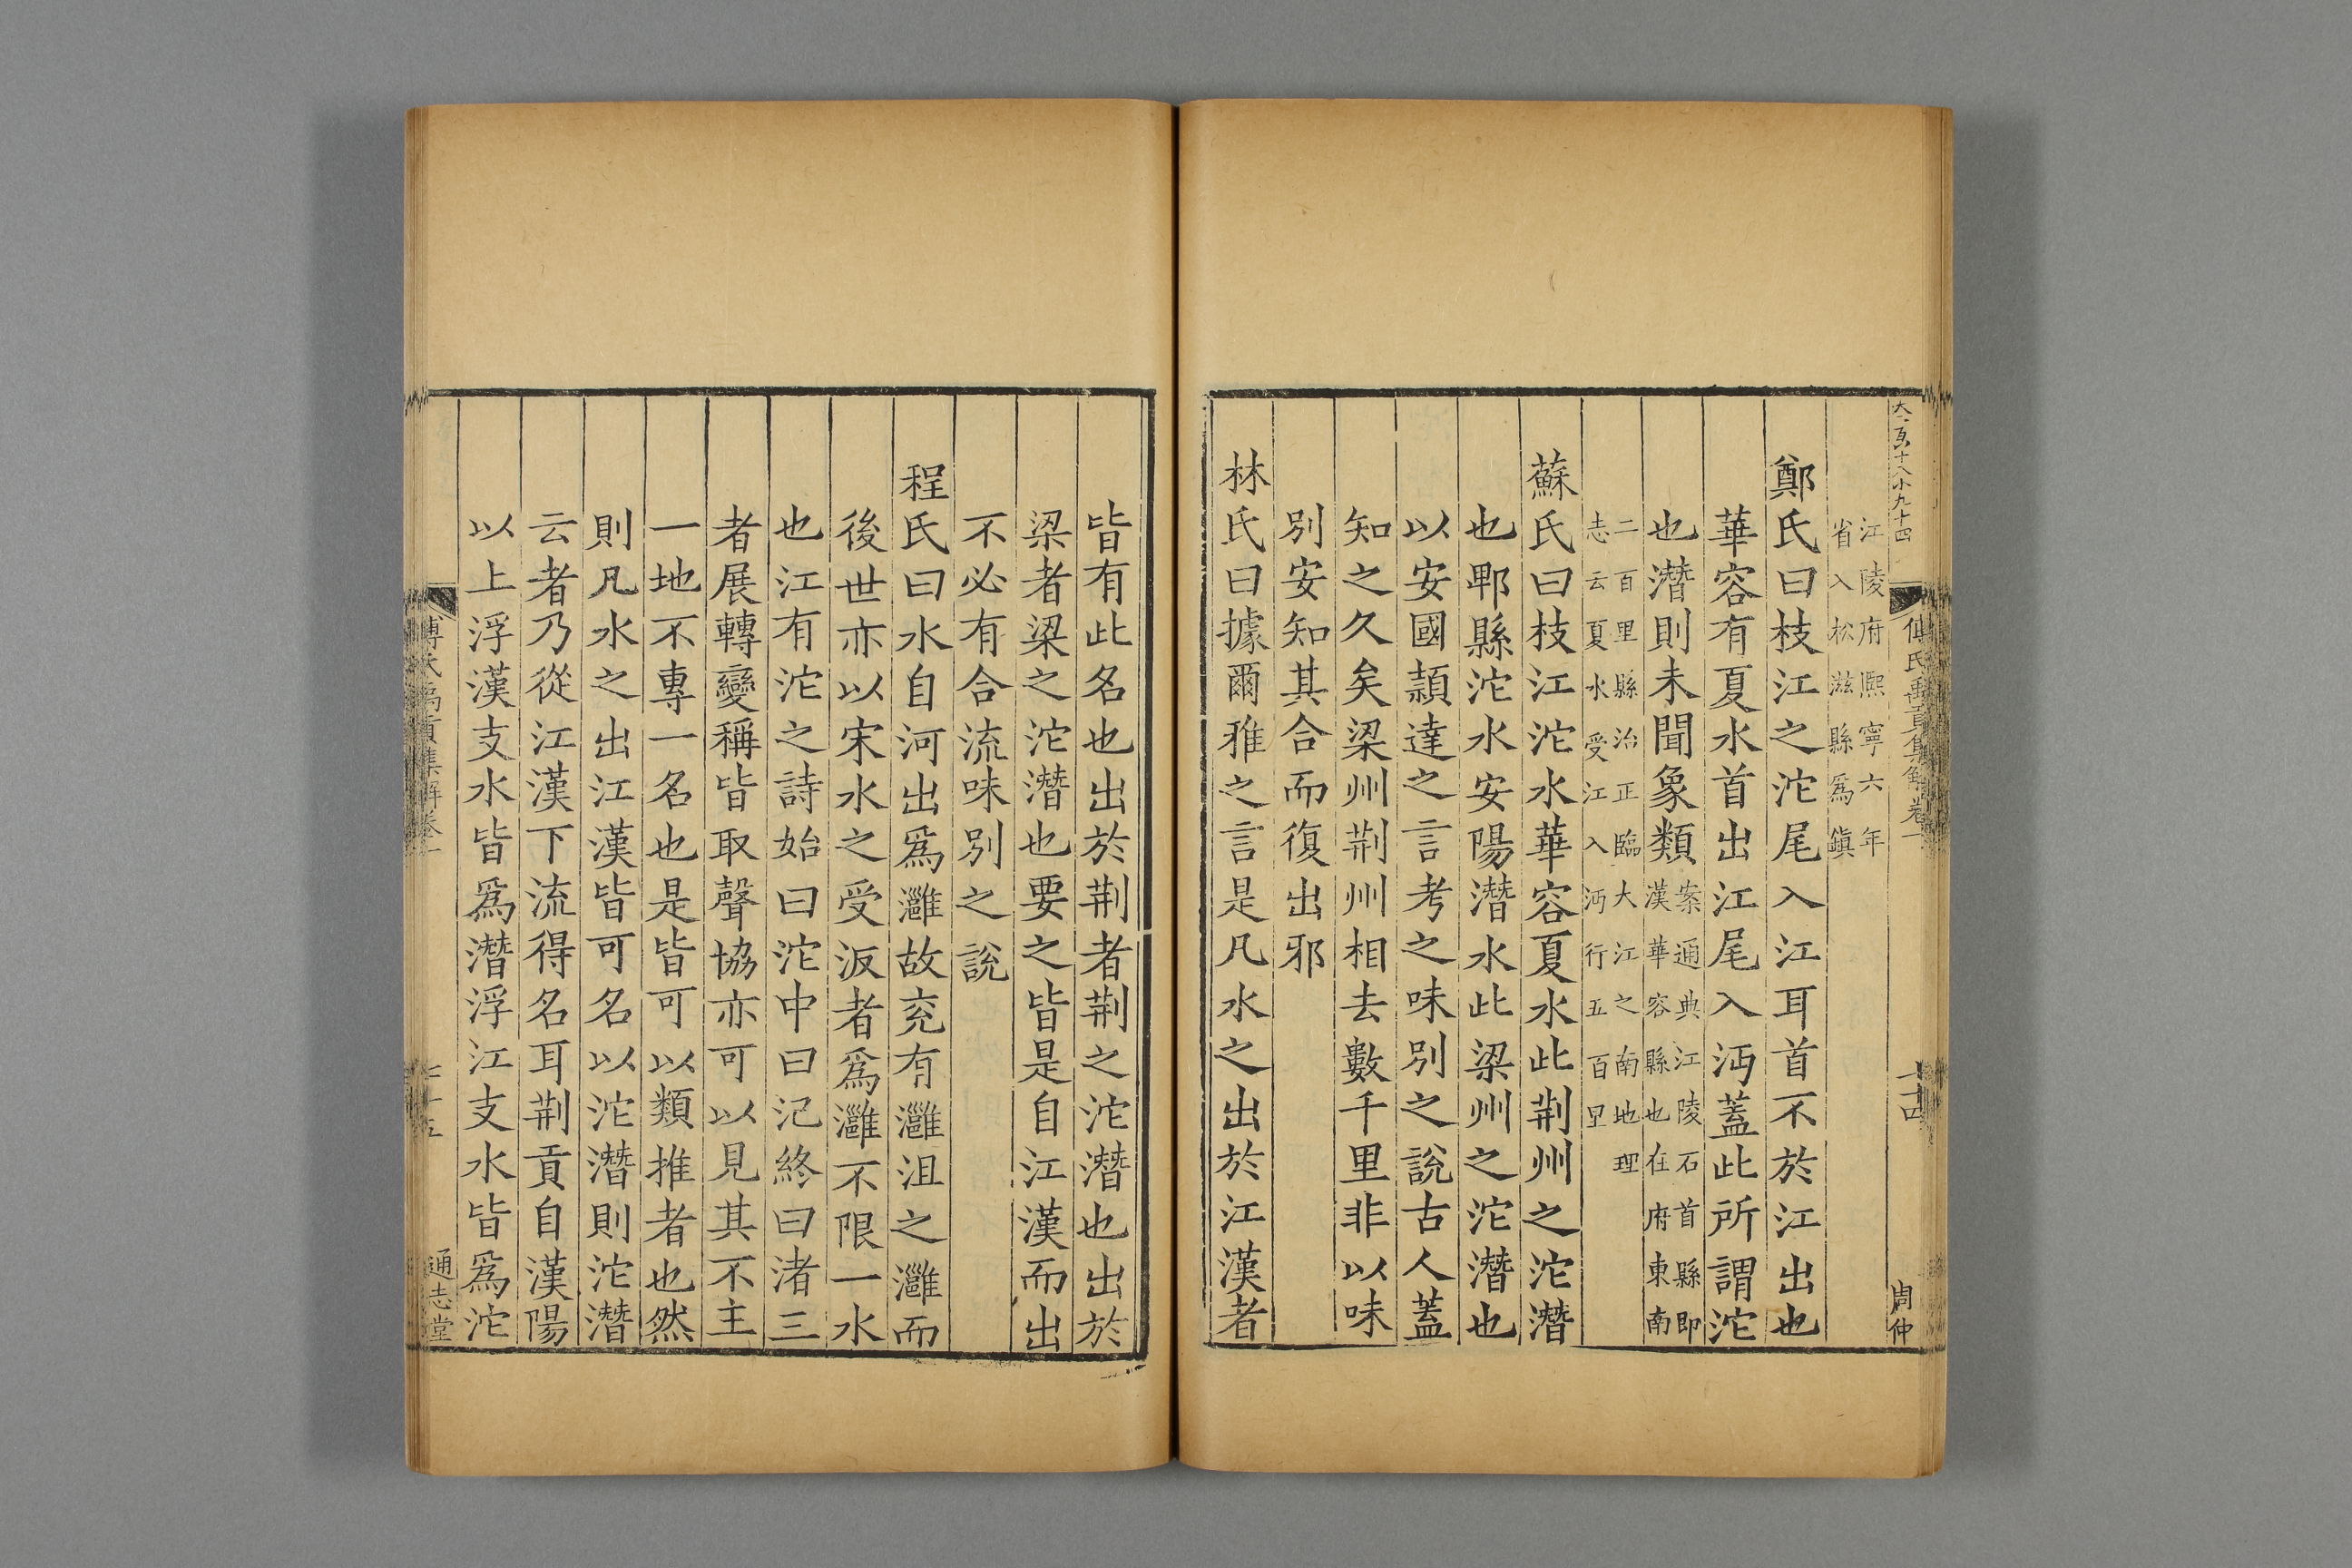 傅氏禹貢集解卷一
周仲
江陵府熙寧六年
省入松滋縣爲鎮
鄭氏曰枝江之沱尾入江耳首不於江出也
華容有夏水首出江尾入沔蓋此所謂沱
也潛則未聞象類
案通典江陵石首縣即
漢華容縣也在府東南
二百里縣治正臨大江之南地理
志云夏水受江入沔行五百里
蘇氏曰枝江沱水華容夏水此荆州之沱潛
也郫縣沱水安陽潛水此梁州之沱潛也
以安國頴達之言考之味別之說古人蓋
知之久矣梁州荆州相去數千里非以味
別安知其合而復出邪
林氏曰據爾雅之言是凡水之出於江漢者
皆有此名也出於荆者荆之沱潛也出於
梁者梁之沱潛也要之皆是自江漢而出
不必有合流味別之說
程氏曰水自河出爲灉故兖有灉沮之灉而
後世亦以宋水之受汳者爲灉不限一水
也江有沱之詩始曰沱中曰汜終曰渚三
者展轉變稱皆取聲協亦可以見其不主
一地不專一名也是皆可以類推者也然
則凡水之出江漢皆可名以沱潛則沱潛
云者乃從江漢下流得名耳荆貢自漢陽
以上浮漢支水皆爲潛浮江支水皆爲沱
通志堂